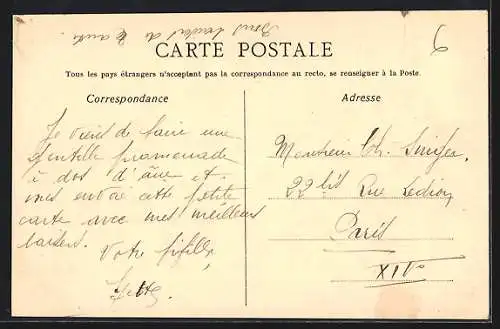 CARTE POSTALE
Tous les pays étrangers n'acceptent pas la correspondance au recto, se renseigner à la Poste.
Correspondance
Je viens de faire une
gentille promenade
à dos d'âne et
vous envoie cette petite
carte avec mes meilleurs
baisers.
Votre fifille,
Adresse
Monsieur Ch.
22 bis Rue Ledion
Paris
XIVe